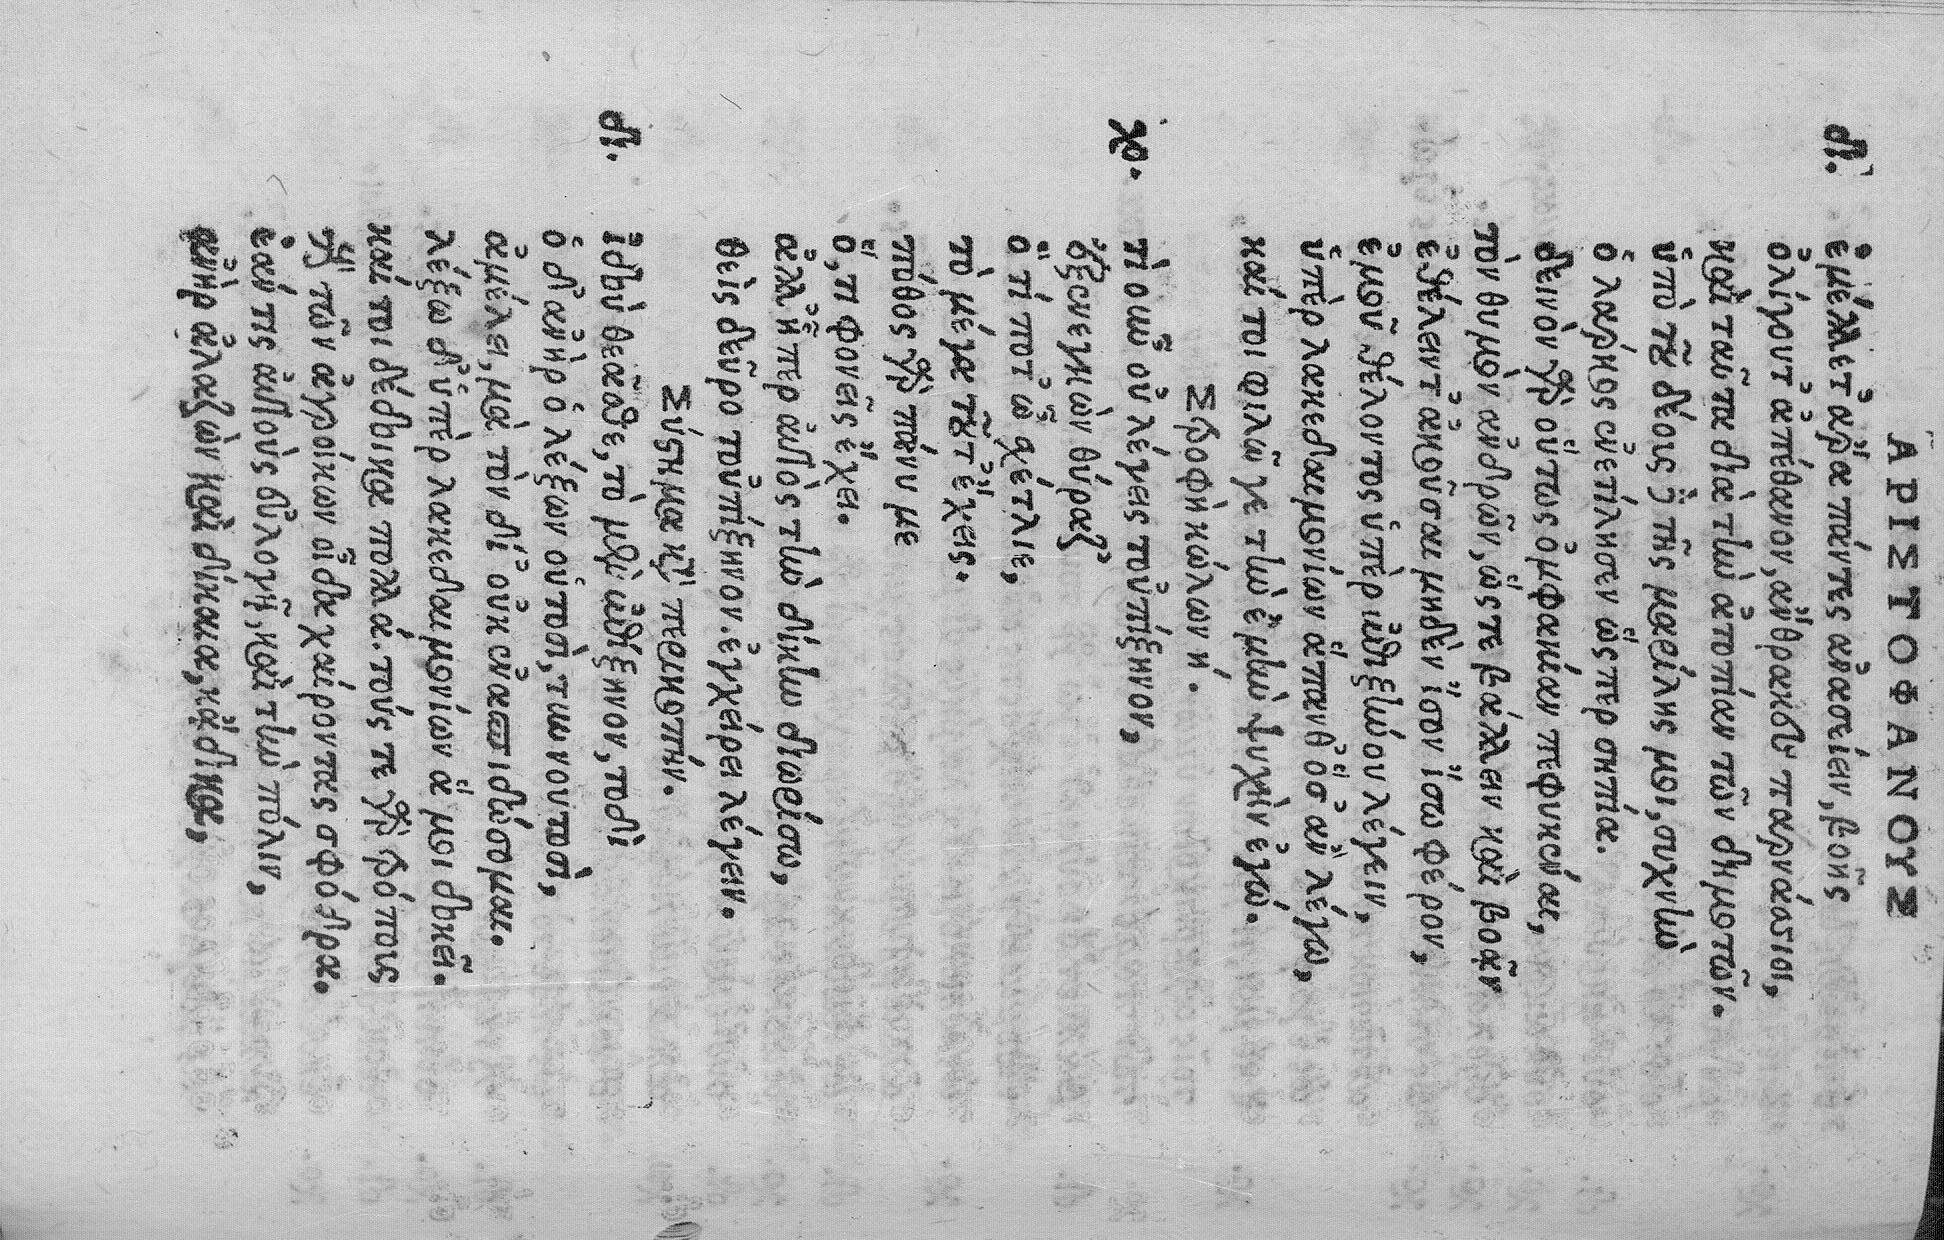 ΑΡΙΣΤΟΦΑΝΟΥΣ
δι. ἐμέλλετ᾽ ἄρα πάντες ἀνασείειν, βοῆς
ὀλίγου τ᾽ ἀπέθανον, ἄνθρακες παρνάσιοι,
καὶ ταῦτα διὰ τὴν ἀτοπίαν τῶν δημοτῶν.
ὑπὸ τοῦ δέους δὲ τῆς μαρίλης μοι, συχνὴν
ὁ λάρκος ἐνετίλησεν ὥσπερ σηπία.
δεινὸν γὰρ οὕτως ὀμφακίαν πεφυκέναι,
τὸν θυμὸν ἀνδρῶν, ὥστε βάλλειν καὶ βοᾶν
ἐθέλειν τ᾽ ἀκοῦσαι μηδὲν ἴσον ἴσω φέρον,
ἐμοῦ θέλοντος ὑπὲρ ἐπιξήνου λέγειν,
ὑπὲρ λακεδαιμονίων ἅπανθ᾽ ὅσ᾽ ἂν λέγω,
καί τοι φιλῶ γε τὴν ἐμὴν ψυχὴν ἐγώ.
Στροφὴ κώλων ή.
χο. τί οὖν οὐ λέγεις τοὐπίξηνον,
ἐξενεγκὼν θύραζ᾽
ὅ τί ποτ᾽ ὦ σχέτλιε,
τὸ μέγα τοῦτ᾽ ἔχεις.
πάθος γὰρ πάνυ με
ὅ, τι φρονεῖς ἔχει.
ἀλλ᾽ ἧπερ αὐτὸς τὴν δίκην διωρίσω,
θεὶς δεῦρο τοὐπίξηνον. ἐγχείρει λέγειν.
Σύστημα κατὰ περικοπήν.
δι. ἰδοὺ θεᾶσθε, τὸ μὲν ἐπίξηνον, τοδὶ
ὁ δ᾽ ἀνὴρ ὁ λέξων οὑτοσὶ, τυννουτοσὶ,
ἀμέλει, μὰ τὸν δί᾽ οὐκ ἐνασπιδώσομαι.
λέξω δ᾽ ὑπὲρ λακεδαιμονίων ἅ μοι δοκεῖ.
καί τοι δέδοικα πολλά. τούς τε γὰρ τρόπους
τοὺς τῶν ἀγροίκων οἶδα χαίροντας σφόδρα.
ἐάν τις αὐτοὺς εὐλογῇ, καὶ τὴν πόλιν,
ἀνὴρ ἀλαζὼν καὶ δίκαια, κἄδικα,